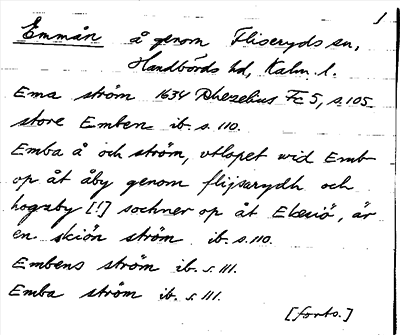 1
Emmån å genom Fliseryds sn,
Handbörds hd, Kalm. l.
Ema ström 1634 Rhezelius Fc 5, s. 105
store Emben ib. s. 110.
Emba å och ström, vtlopet wid Emb
op åt åby genom flijsarydh och
hogzby [!] sochner op åt Ekesiö, är
en skiön ström ib. s. 110.
Embens ström ib. s. 111.
Emba ström ib. s. 111.
[forts.]